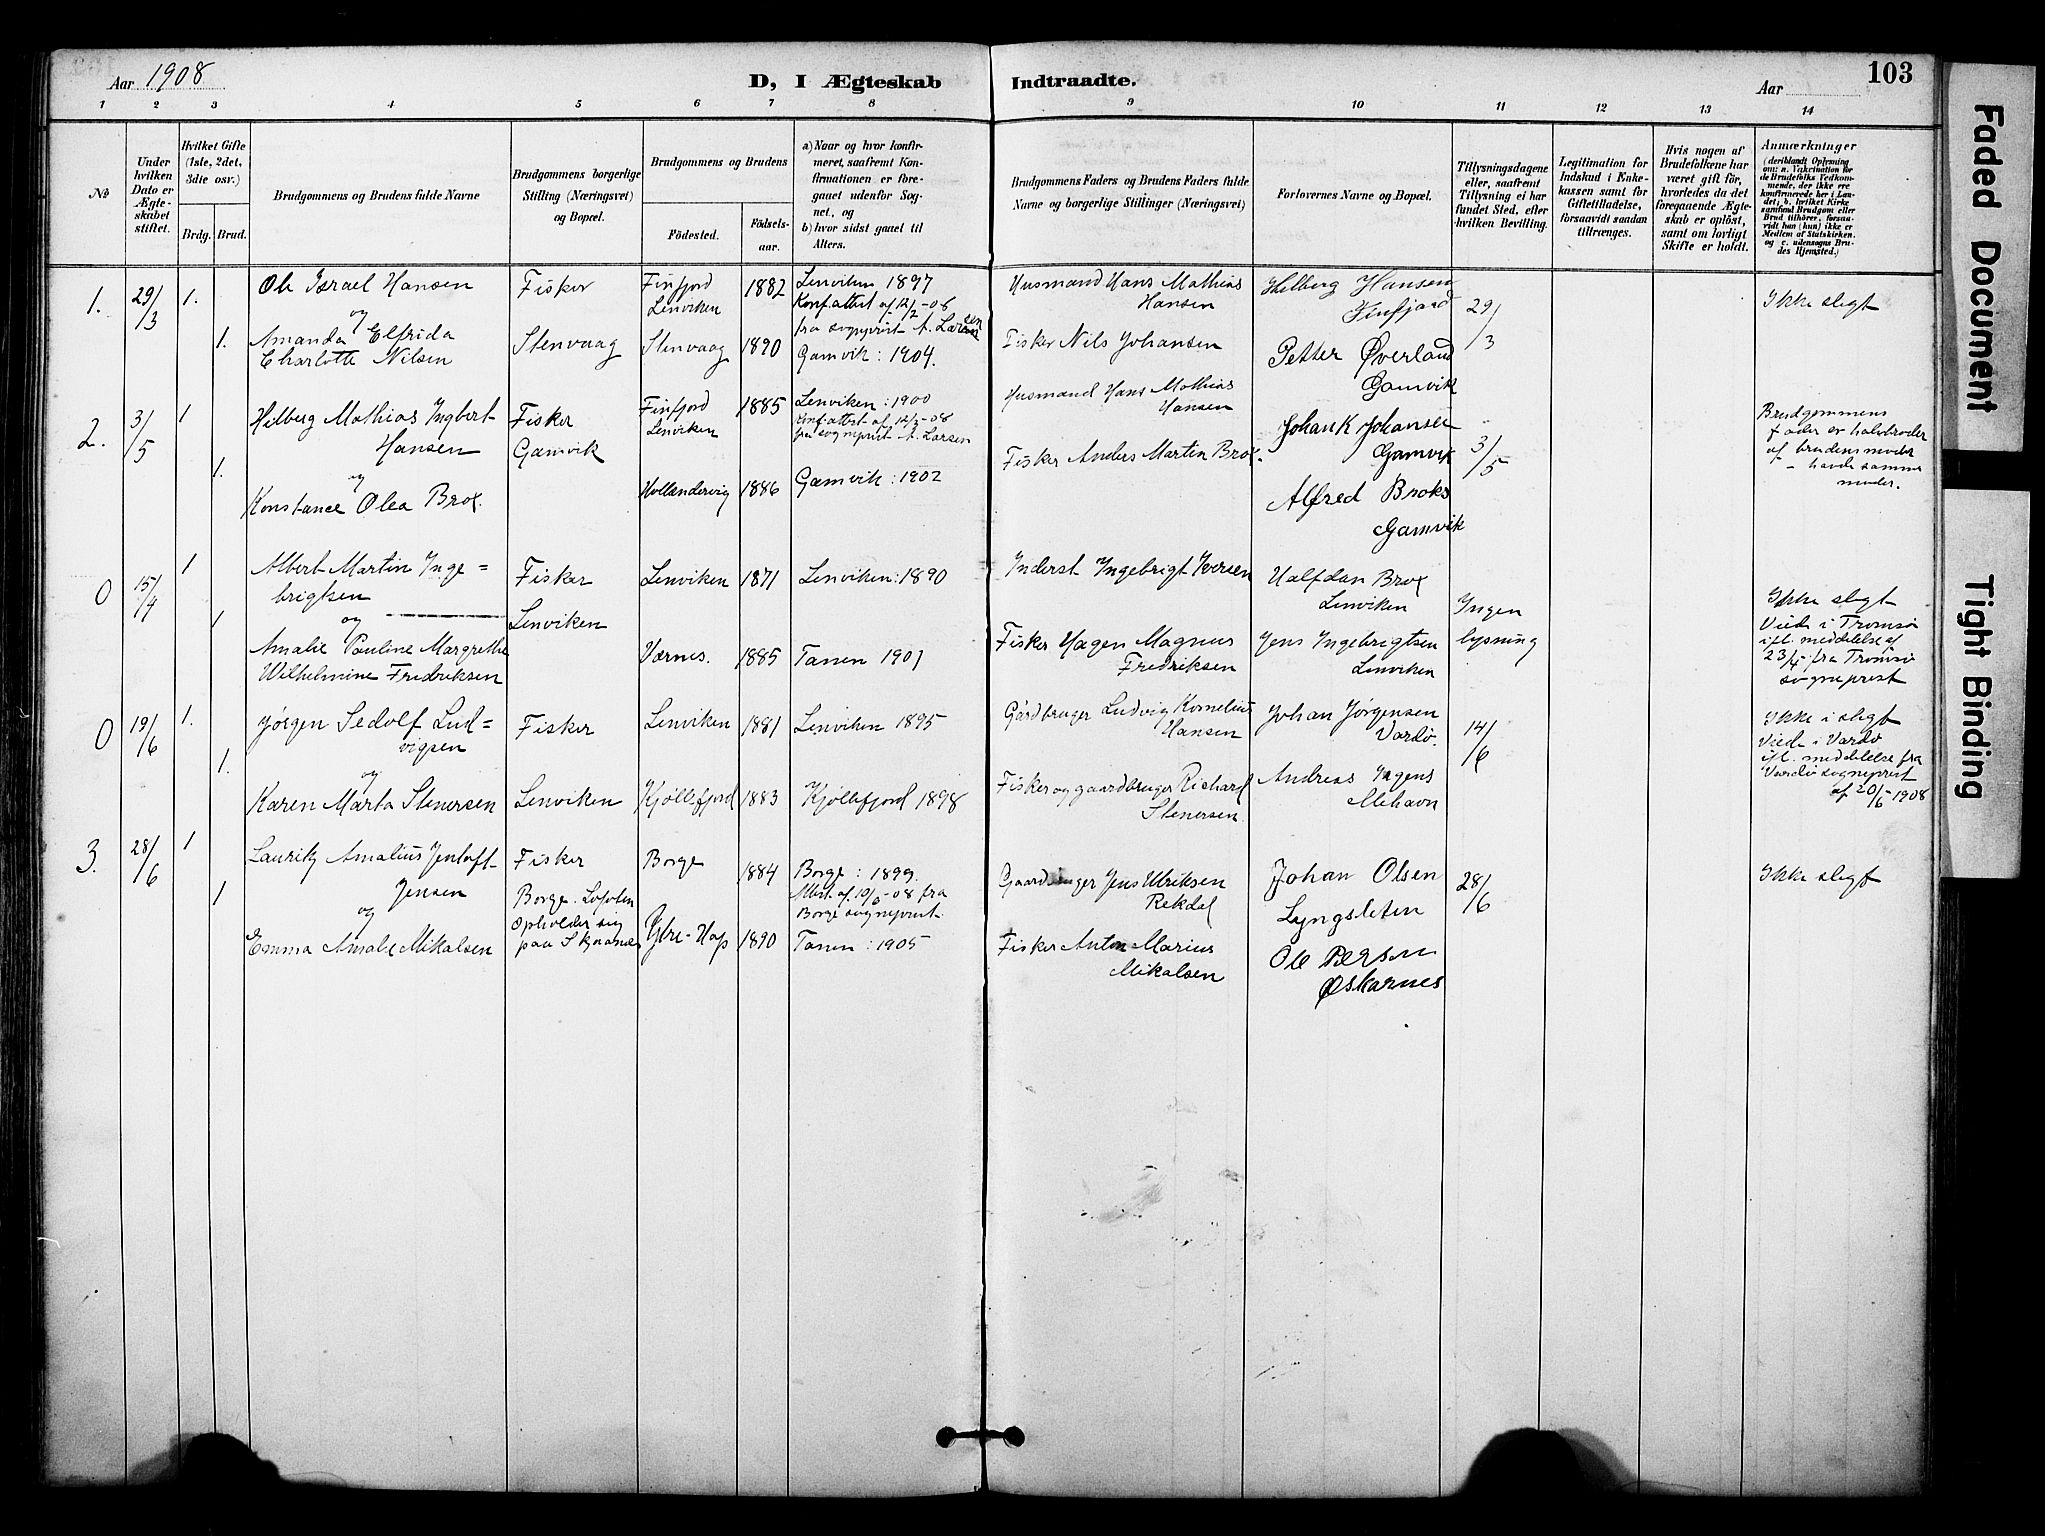 Aar 1908
D, I Ægteskab
Indtraadte.
Aar
103
1 2 3 4 5 6 7 8 9 10 11 12 13 14
No
Under hvilken Dato er Ægte-skabet stiftet.
Hvilket Gifte (1ste, 2det, 3die osv.)
Brdg. Brud.
Brudgommens og Brudens fulde Navne
Brudgommens borgerlige Stilling (Næringsvei) og Bopæl.
Brudgommens og Brudens
Fødested.
Fødsels-aar.
a) Naar og hvor konfir-
meret, saafremt Kon-
firmationen er fore-
gaaet udenfor Sog-
net, og
b) hvor sidst gaaet til
Alters.
Brudgommens Faders og Brudens Faders fulde
Navne og borgerlige Stillinger (Næringsvei)
Forlovernes Navne og Bopæl.
Tillysningsdagene
eller, saafremt
Tillysning ei har
fundet Sted, efter
hvilken Bevilling.
Legitimation for
Indskud i Enke-
kassen samt for
Giftetilladelse,
forsaavidt saadan
tiltrænges.
Hvis nogen af
Brudefolkene har
været gift før,
hvorledes da det
foregaaende Ægte-
skab er opløst,
samt om lovligt
Skifte er holdt.
Anmærkninger
(deriblandt Oplysning
om: a. Vakcination for
de Brudefolks Vedkom-
mende, der ikke ere
konfirmerede her i Lan-
det; b. hvilket Kirke
samfund Brudgom eller
Brud tilhører, forsaa-
vidt han (hun) ikke er
Medlem af Statskirken.
og c. udensogns Bru-
des Hjemsted.)
1. 29/3 1.
Ole Israel Hansen
og
1. Amanda Elfrida
Charlotte Nilsen
Fisker
Stenvaag
Finfjord
Lenviken
1882
Stenvaag 1890
Lenviken 1897
Konf.attest af 12/2-08
fra sogneprest A. Larsen
Gamvik: 1904.
Husmand Hans Mathias
Hansen
Fisker Nils Johansen
Hilberg Hansen
Finfjord
Petter Øverland
Gamvik
29/3
Ikke slegt
2. 3/5 1
Hilberg Mathias Ingbert
Hansen
1. og
Konstance Olea Brox.
Fisker
Gamvik
Finfjord
Lenviken
1885
Hollændervig 1886
Lenviken: 1900
Konf.attest af 12/2-08
fra sogneprest A. Larsen
Gamvik: 1902
Husmand Hans Mathias
Hansen
Fisker Anders Martin Brox.
Johan K Johansen
Gamvik
Alfred Broks
Gamvik
3/5
Brudgommens
fader er halvbroder
af brudens moder
– havde samme
moder.
0 15/4 1
Albert Martin Inge=
brigtsen
1. og
Amalie Pauline Margrethe
Wilhelmine Fredriksen
Fisker
Lenviken
Lenviken 1871
Værnes. 1885
Lenviken: 1890
Tanen 1901
Inderst Ingebrigt Iversen
Fisker Hagen Magnus
Fredriksen
Halfdan Brox
Lenviken
Jens Ingebrigtsen
Lenviken
Ingen
lysning
Ikke slegt
Viede i Tromsø
ifl. meddelelse af
23/4 fra Tromsø
sogneprest
0 19/6 1.
Jørgen Sedolf Lud=
vigsen
1. og
Karen Marta Stenersen
Fisker
Lenviken
Lenviken 1881
Kjøllefjord 1883
Lenviken 1895
Kjøllefjord 1898
Gårdbruger Ludvig Kornelius
Hansen
Fisker og gaardbruger Richard
Stenersen
Johan Jørgensen
Vardø.
Andreas Ingens
Mehavn
14/6
Ikke i slegt
Viede i Vardø
ifl. meddelelse fra
Vardø sogneprest
af 20/6-1908
3. 28/6 1
Lauritz Amalius Jentoft
Jensen
1 og
Emma Amalie Mikalsen
Fisker
Borge. Lofoten
opholder sig
paa Skjaanes
Borge 1884
Ytre-Hop 1890
Borge: 1899.
Attest af 10/6-08 fra
Borge sogneprest.
Tanen: 1905
Gaardbruger Jens Ulriksen
Rekdal
Fisker Anton Marius
Mikalsen
Johan Olsen
Lyngsleten
Ole Person
Øskarnes
28/6
Ikke slegt
Faded Document
Tight Binding